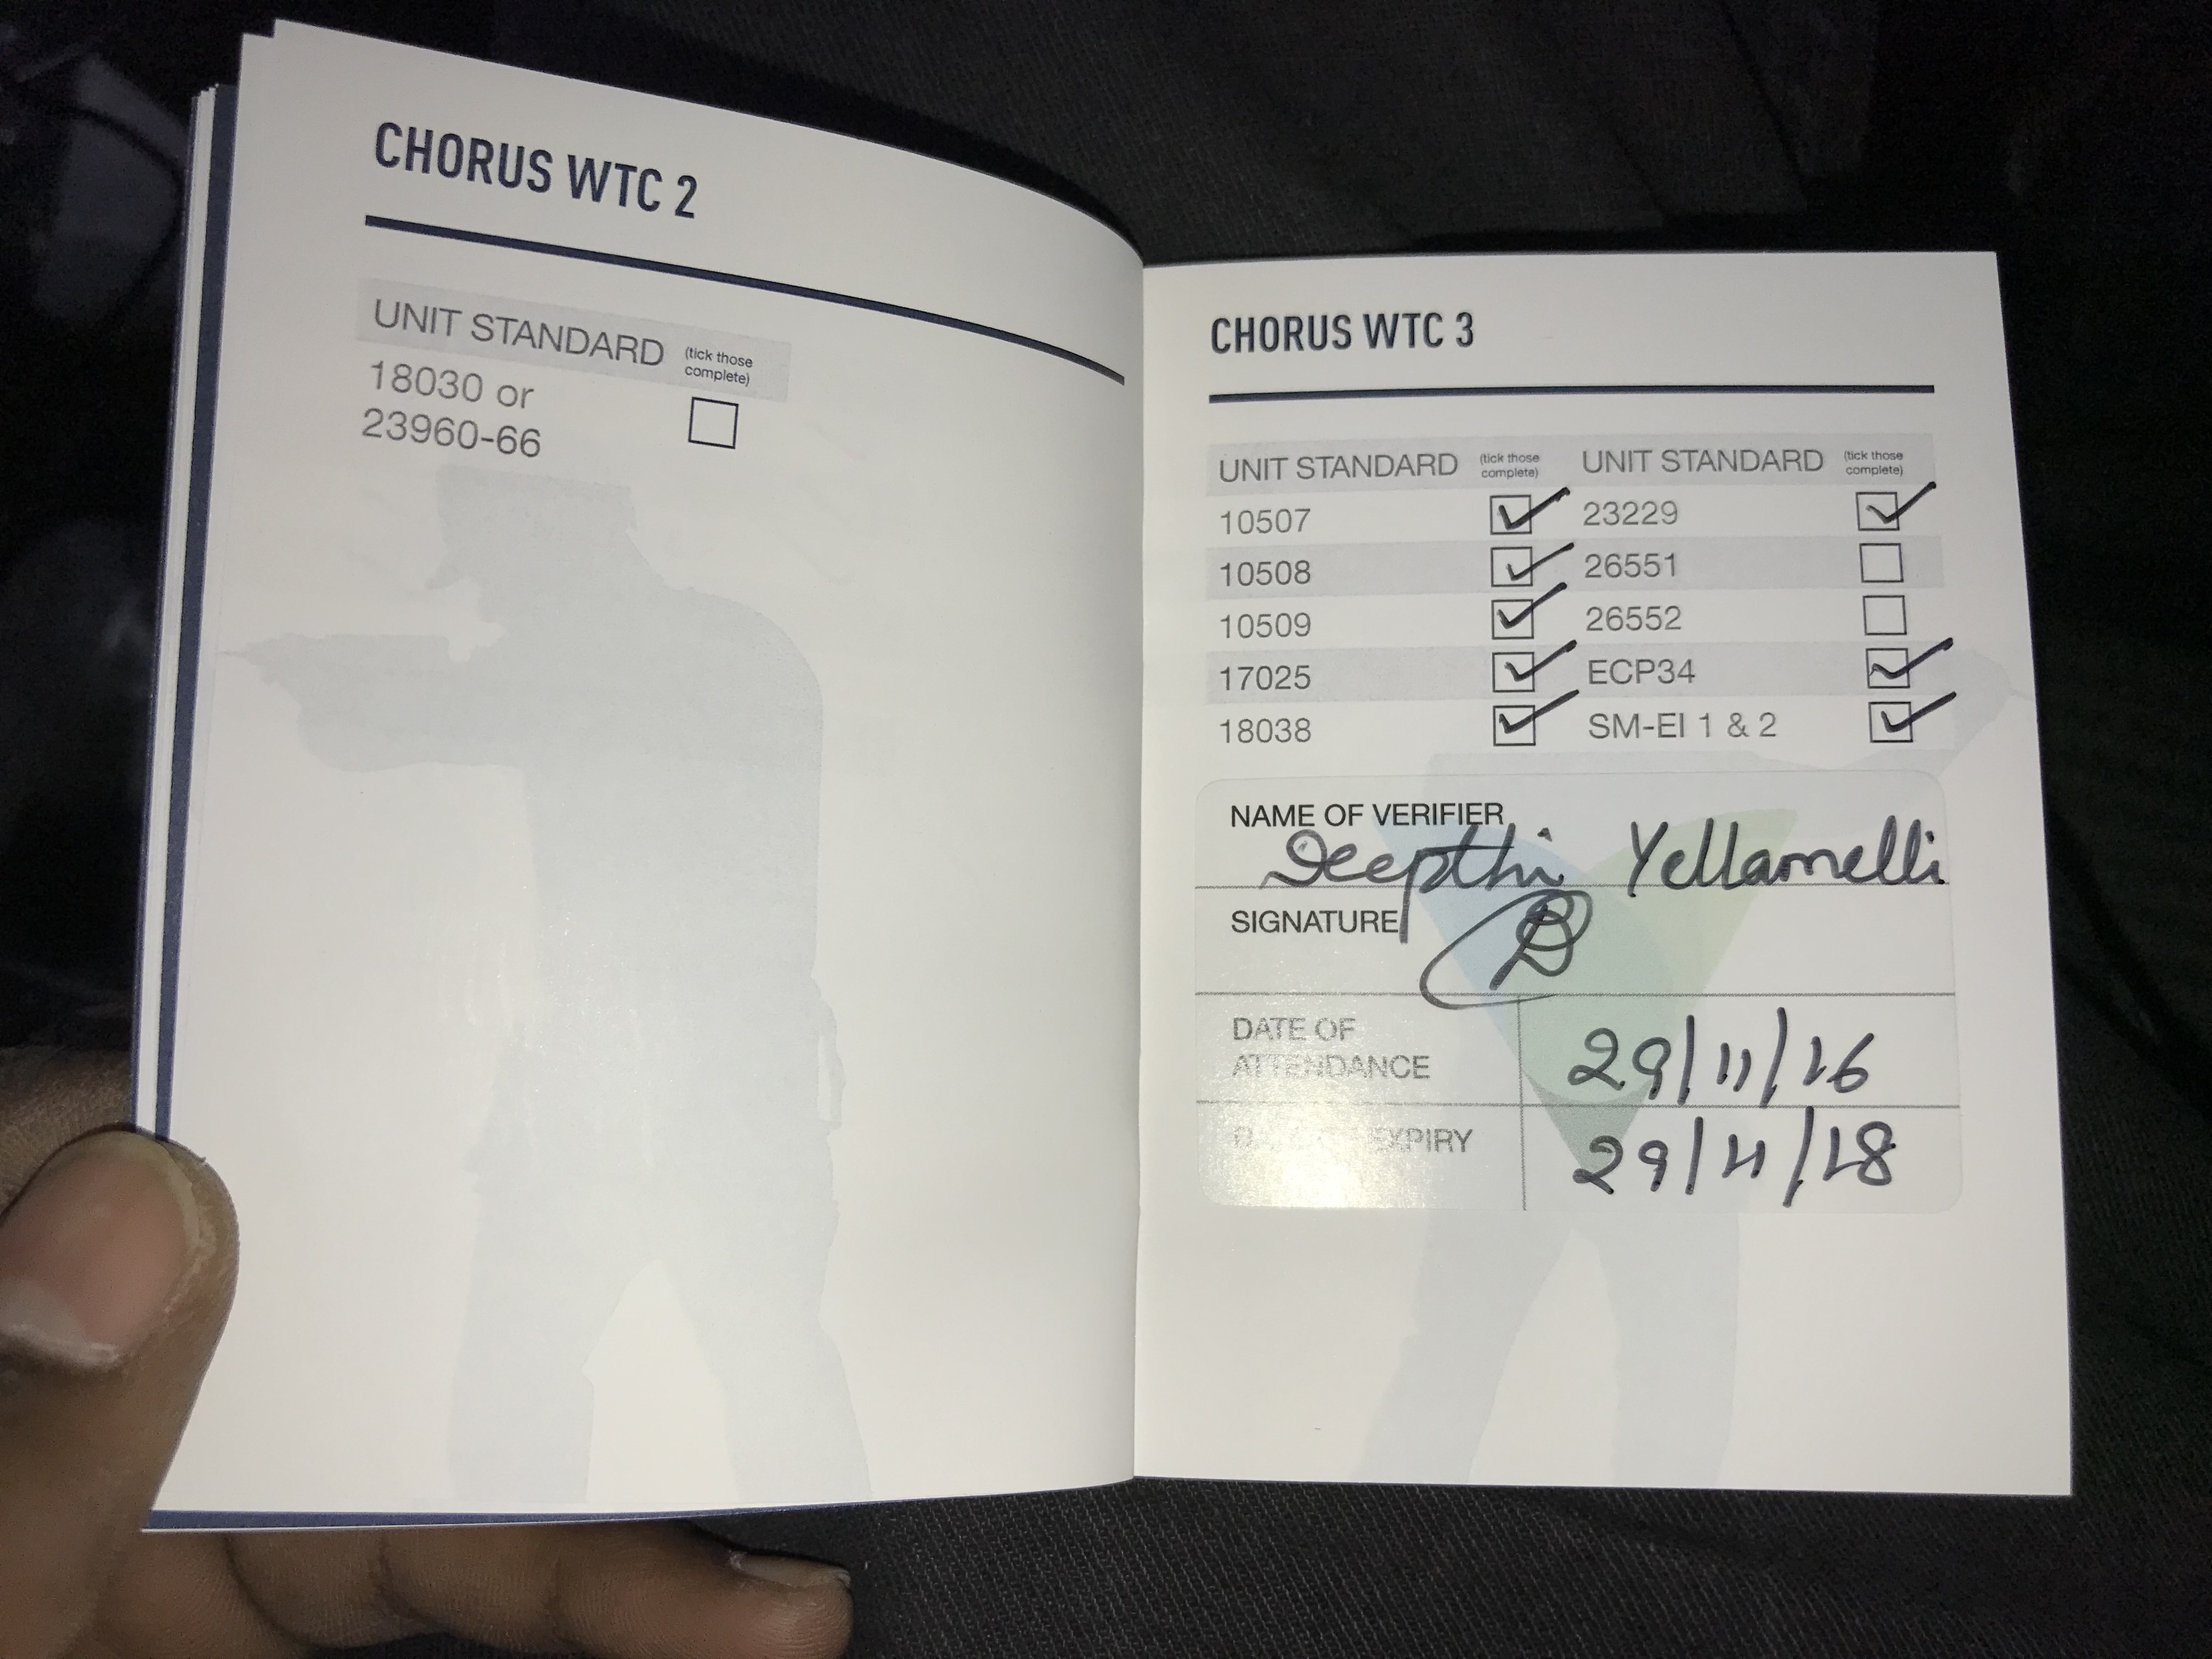 CHORUS WTC 2
UNIT STANDARD (tick those complete)
18030 or
23960-66
CHORUS WTC 3
UNIT STANDARD (tick those complete) UNIT STANDARD (tick those complete)
10507 23229
10508 26551
10509 26552
17025 ECP34
18038 SM-EI 1 & 2
NAME OF VERIFIER
Deepthi Yellamelli
SIGNATURE
DATE OF
ATTENDANCE 29/11/16
EXPIRY 29/11/18